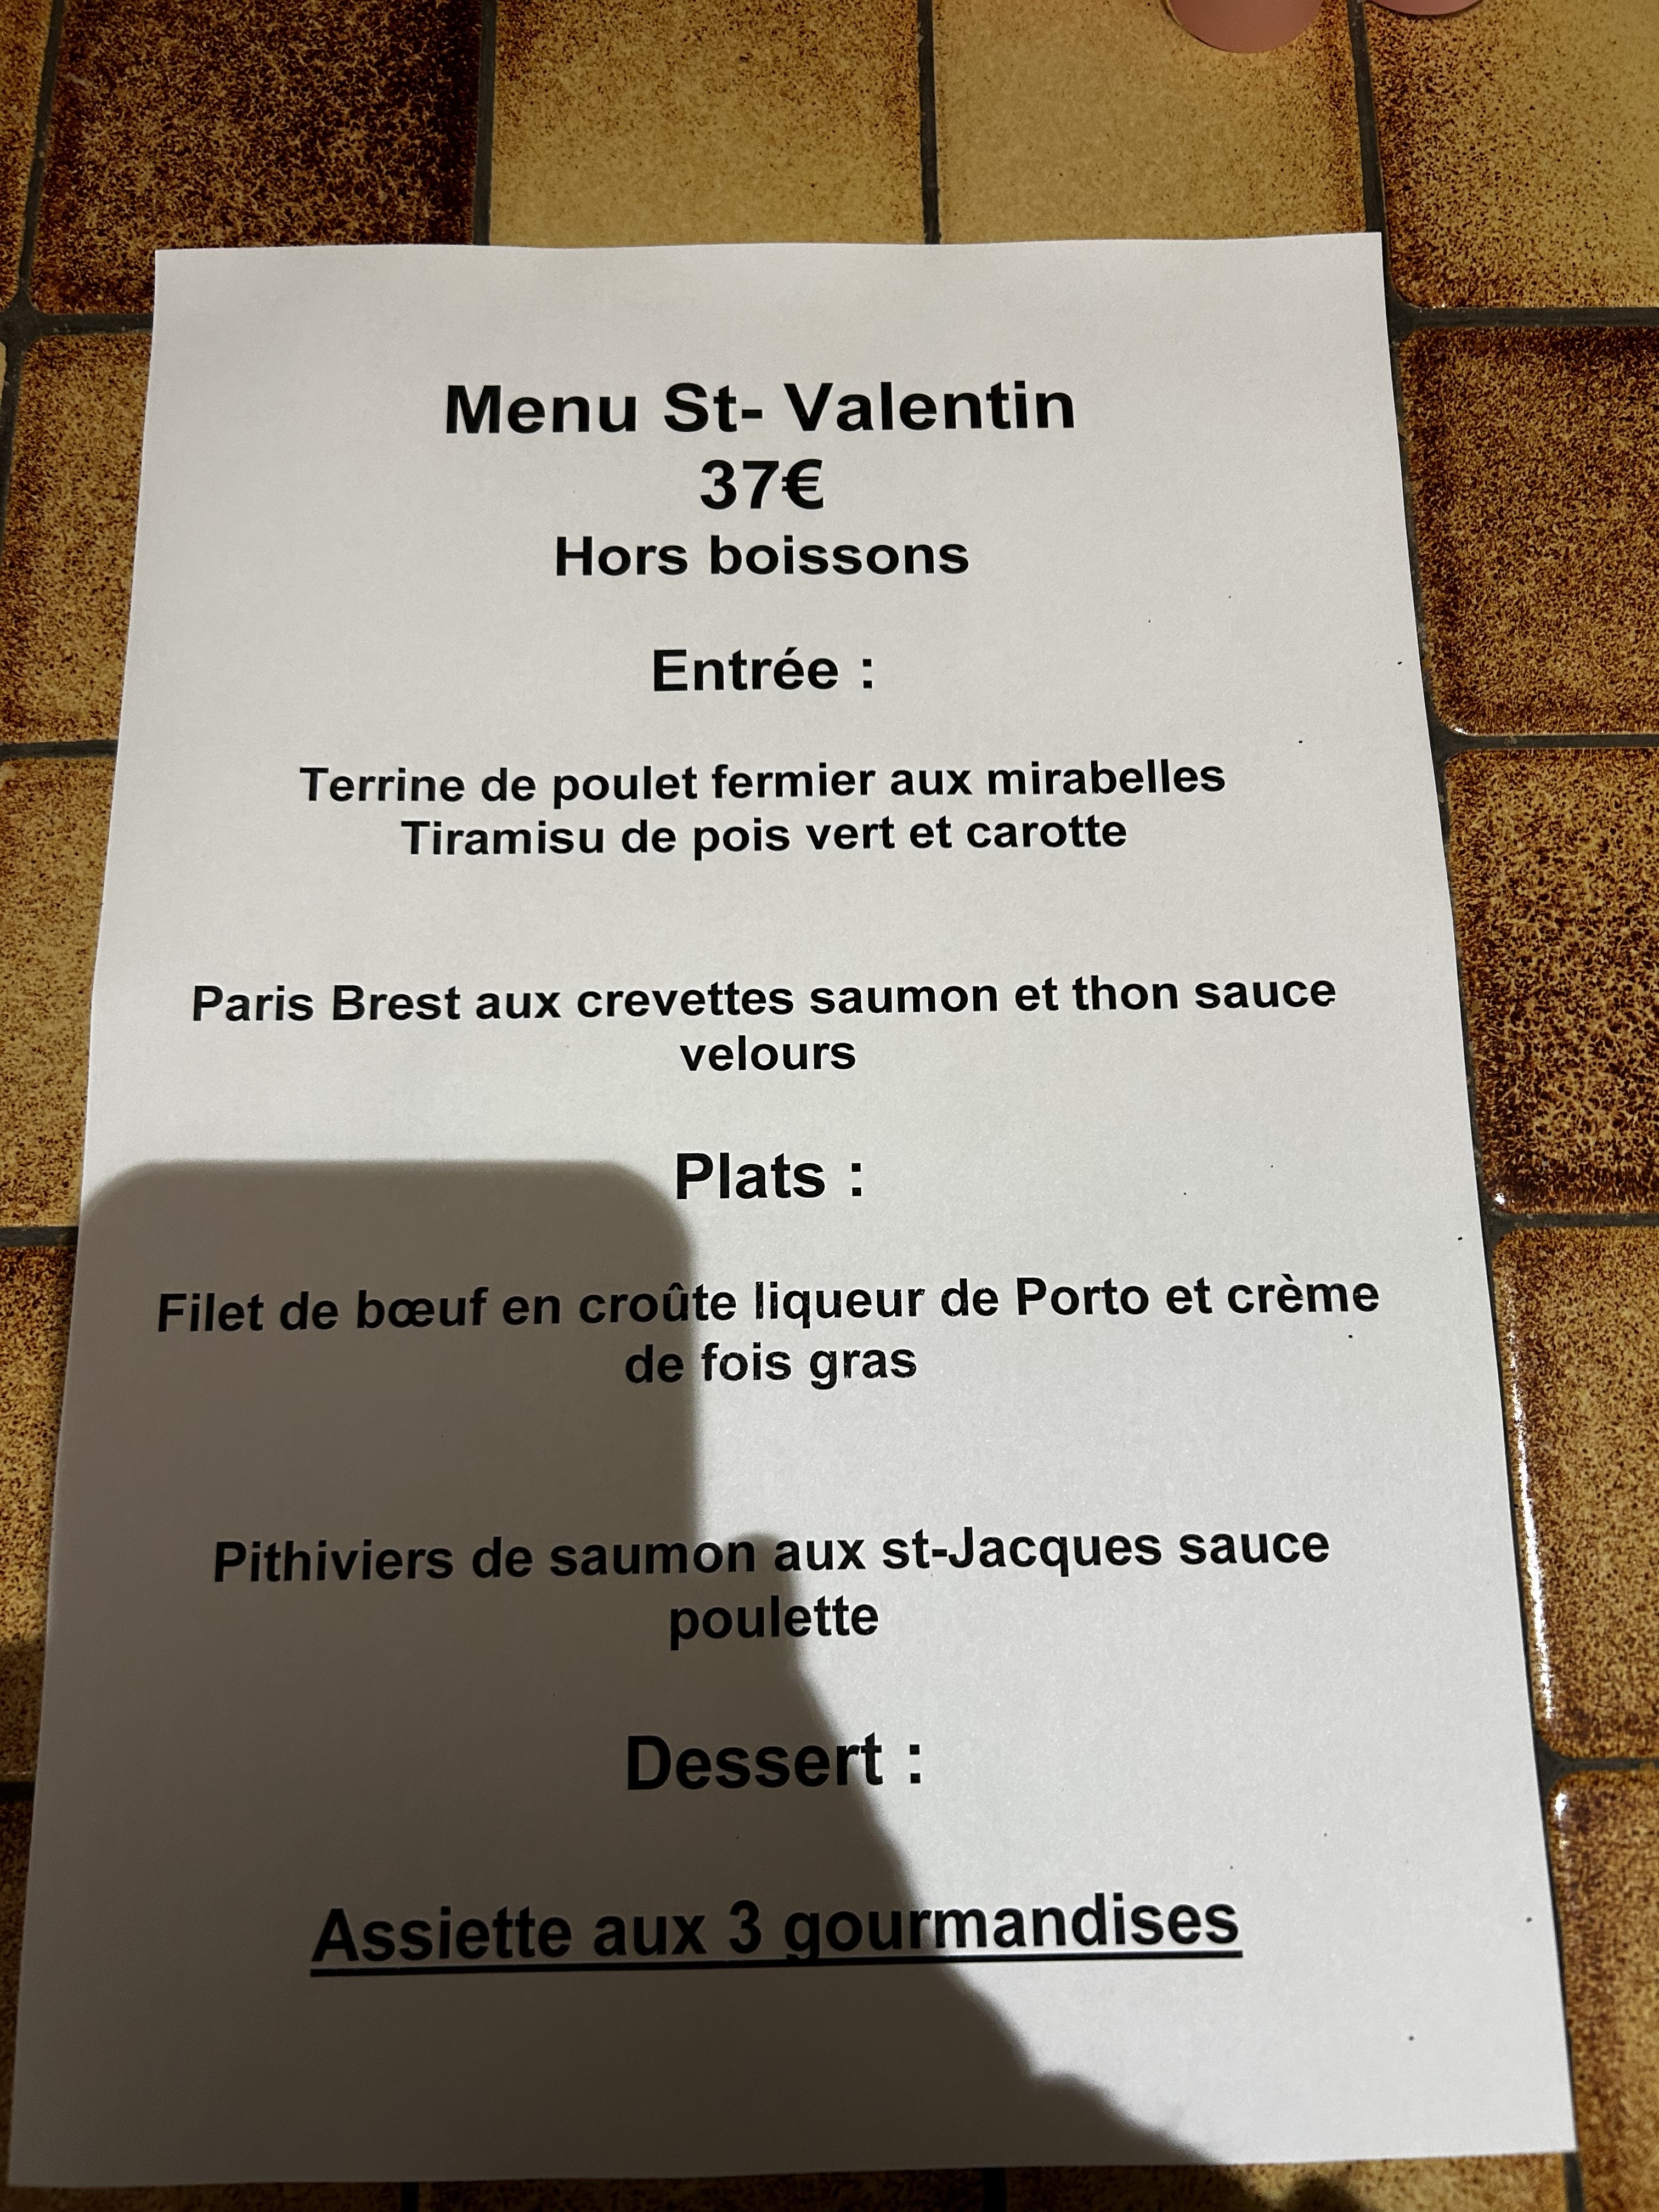 Menu St- Valentin
37€
Hors boissons
Entrée :
Terrine de poulet fermier aux mirabelles
Tiramisu de pois vert et carotte
Paris Brest aux crevettes saumon et thon sauce
velours
Plats :
Filet de bœuf en croûte liqueur de Porto et crème
de fois gras
Pithiviers de saumon aux st-Jacques sauce
poulette
Dessert :
Assiette aux 3 gourmandises